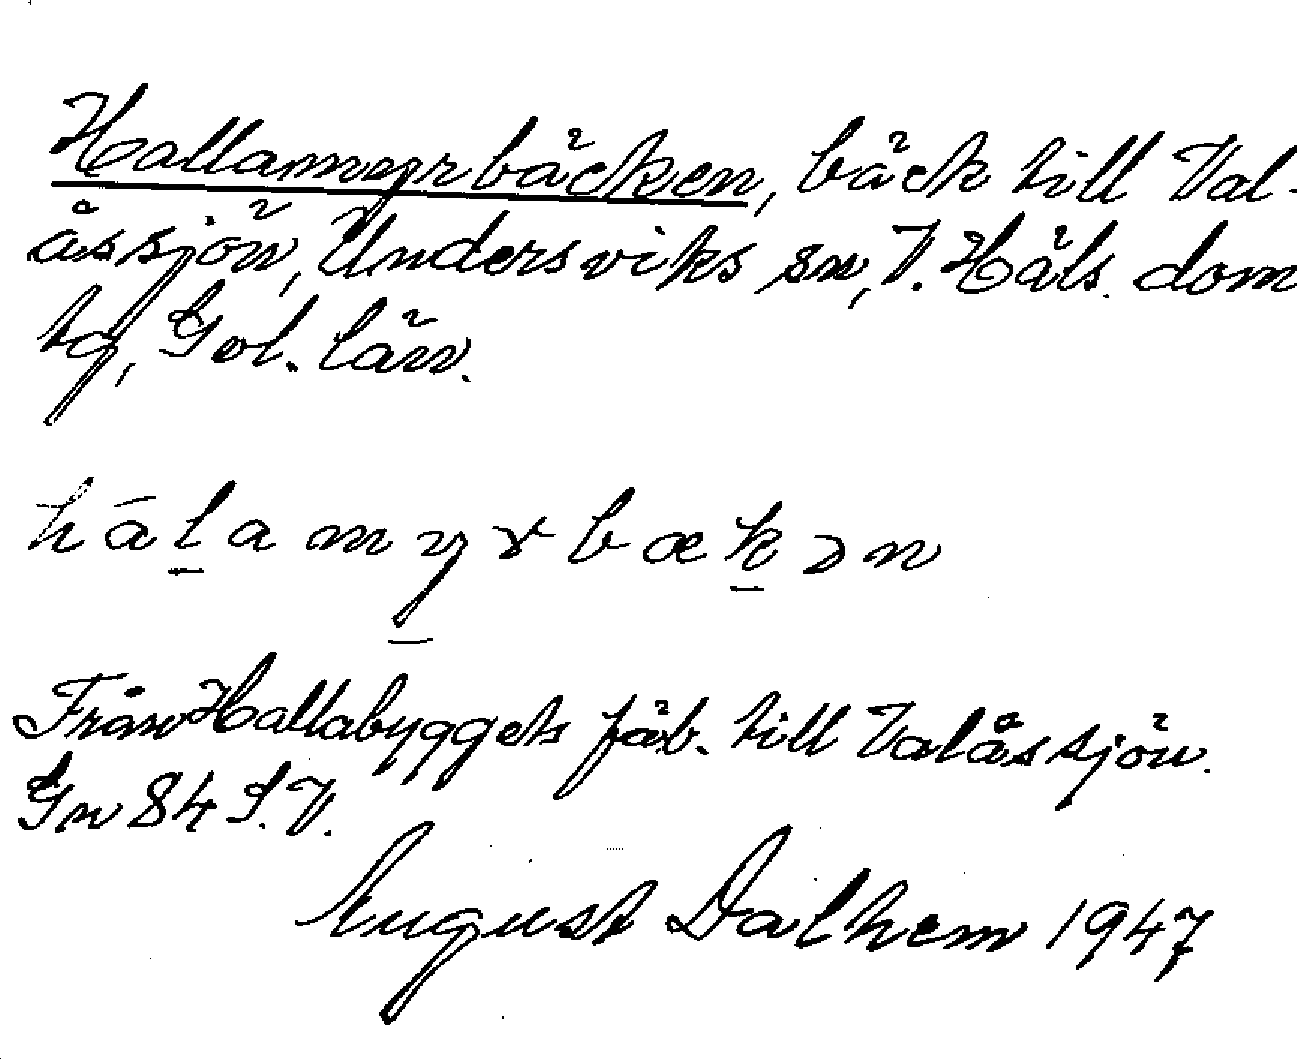 Hallamyrbäcken, bäck till Val-
åssjön, Undersviks sn, V. Häls. dom
sg, Gvl. län.
hála myrbækən
Från Hallabyggets fäb. till Valåssjön.
Gn 84 S.V.
August Dalhem 1947